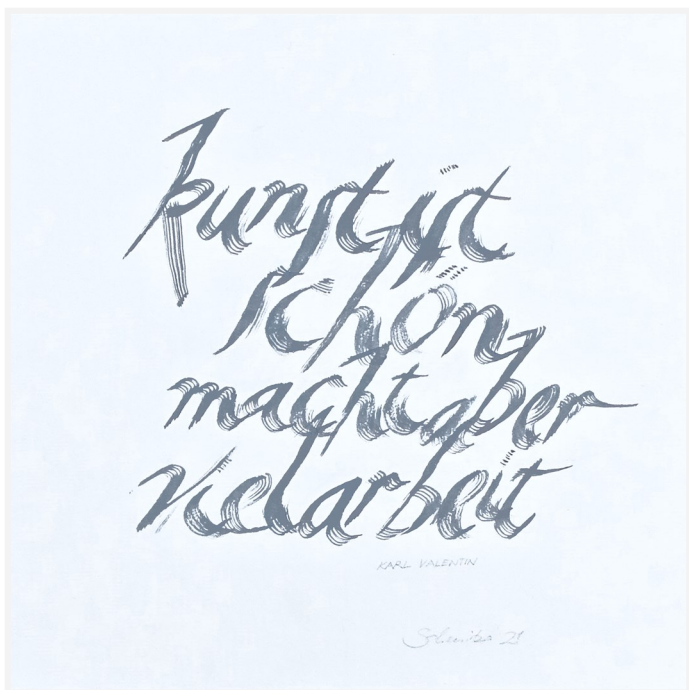 kunst ist
schön,
macht aber
viel arbeit
KARL VALENTIN